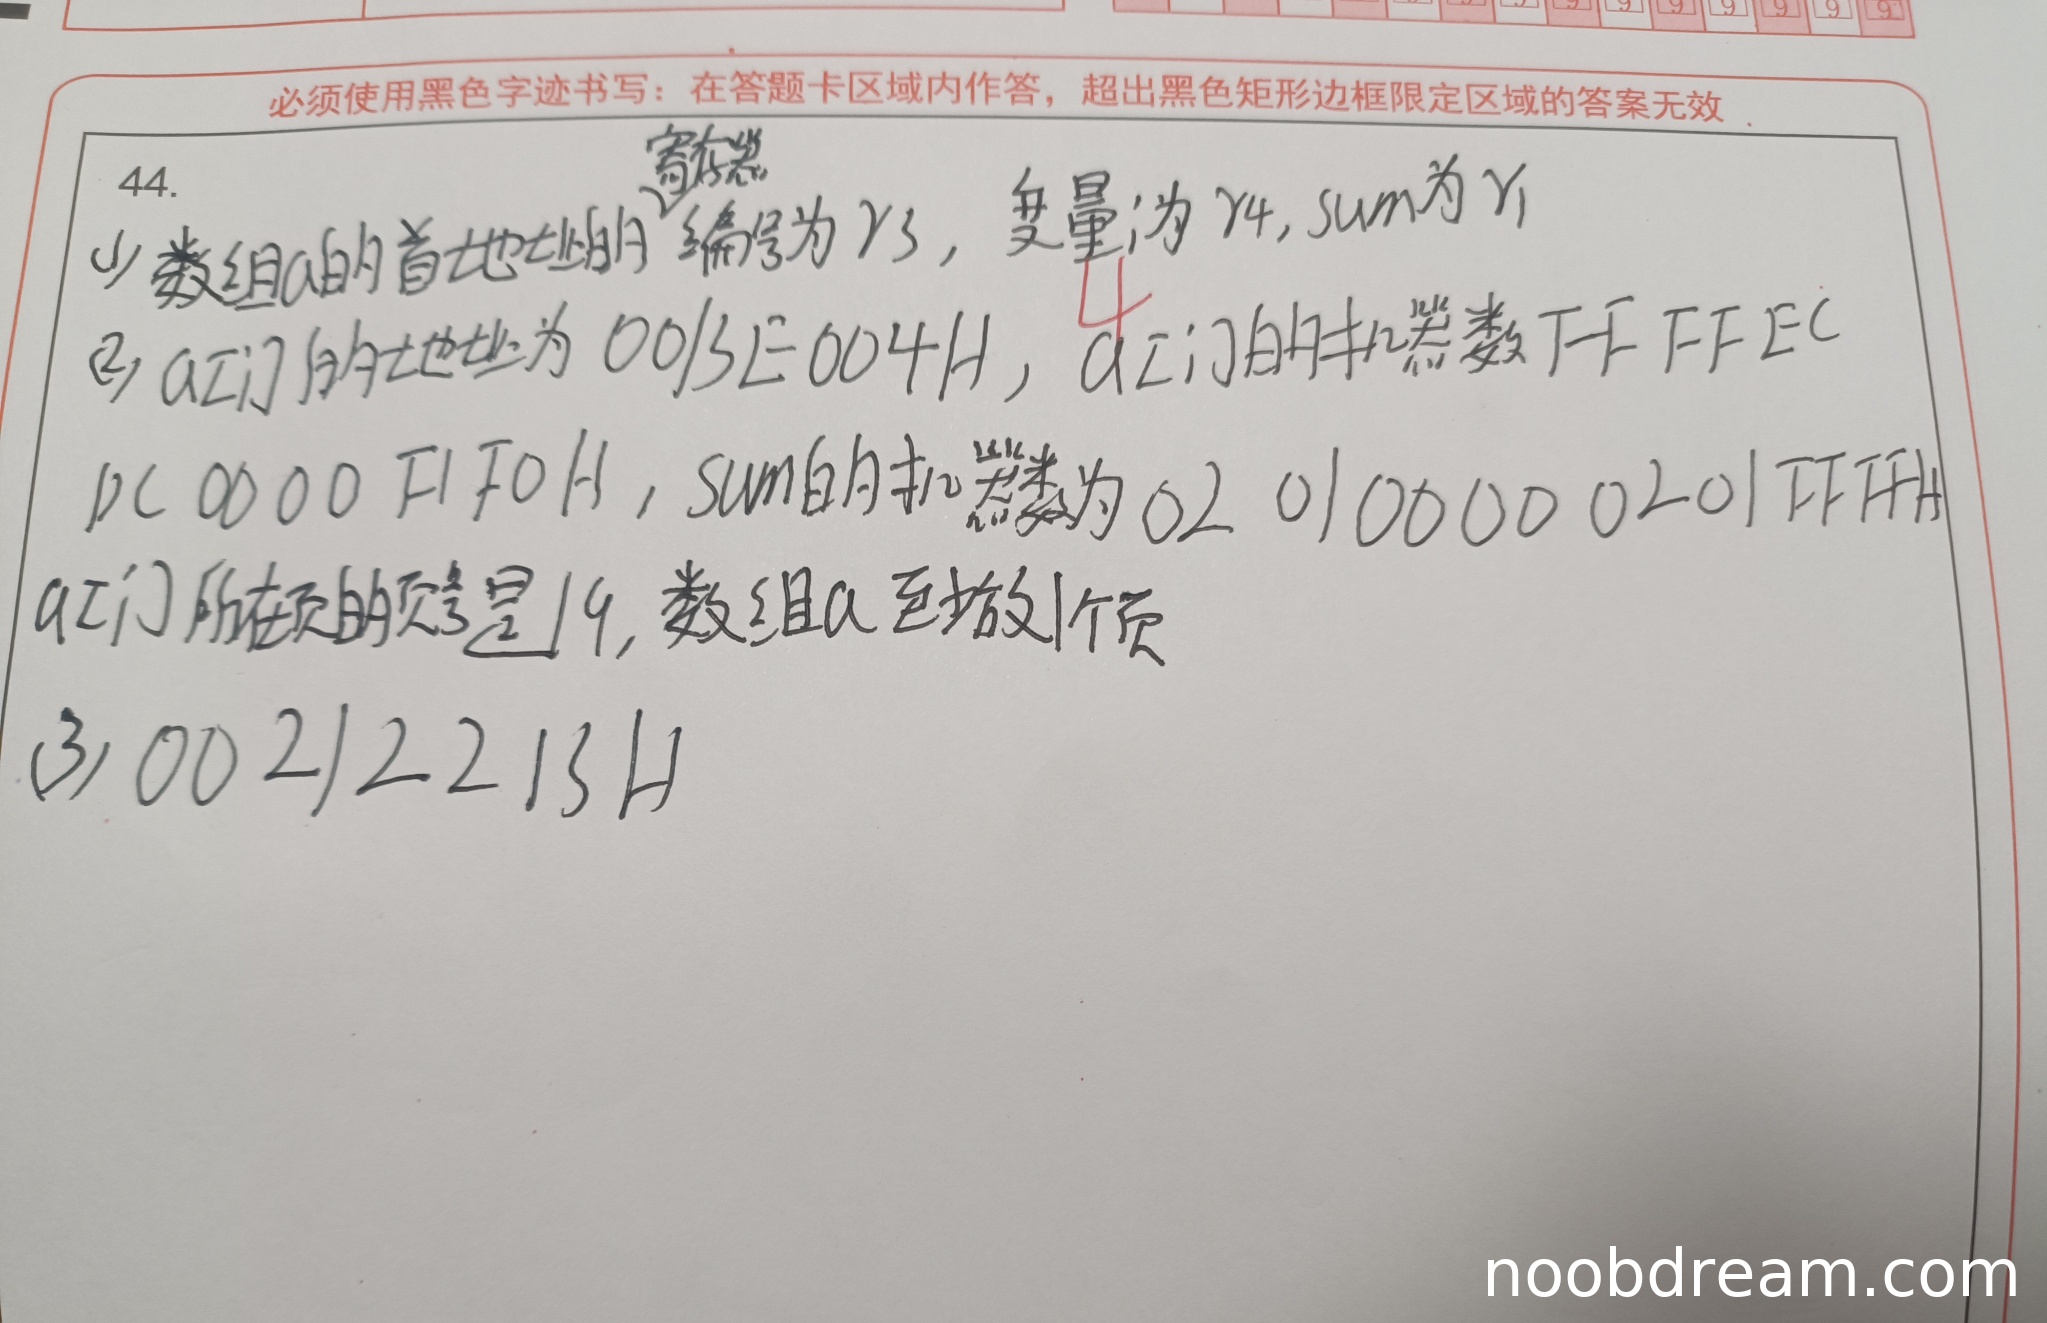 必须使用黑色字迹书写：在答题卡区域内作答，超出黑色矩形边框限定区域的答案无效
44.
寄存器
(1) 数组a的首地址的编号为r3, 变量i为r4, sum为r1
4
(2) a[i]的地址为0013E004H, a[i]的机器数FFFFEC
DC0000F1F0H, sum的机器数为02010000 0201FFFFH
a[i]所在页的页号是19, 数组a至少放1个页
(3) 00212213H
noobdream.com